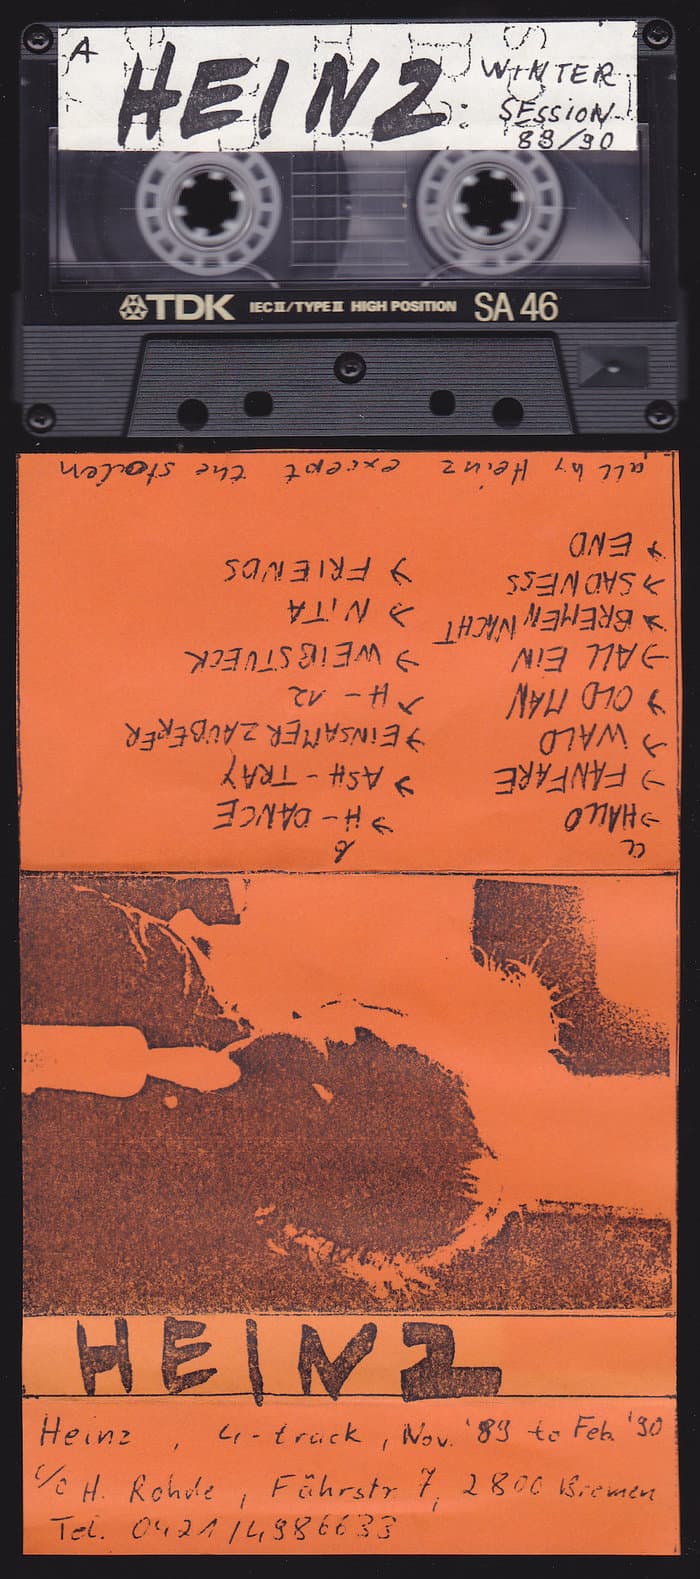 A
HEINZ
WINTER
SESSION
89/90
TDK IEC II/TYPE II HIGH POSITION SA 46
a
→ HALLO
→ FANFARE
→ WALD
→ OLD MAN
→ ALL EIN
→ BREMEN NACHT
→ SADNESS
→ END
b
→ H-DANCE
→ ASH-TRAY
→ EINSAMER ZAUBERER
→ H-12
→ WEIßSTUECK
→ NITA
→ FRIENDS
all by Heinz except the stolen
HEINZ
Heinz, 4-track, Nov. '89 to Feb. '90
c/o H. Rohde, Fährstr 7, 2800 Bremen
Tel. 0421/4986633